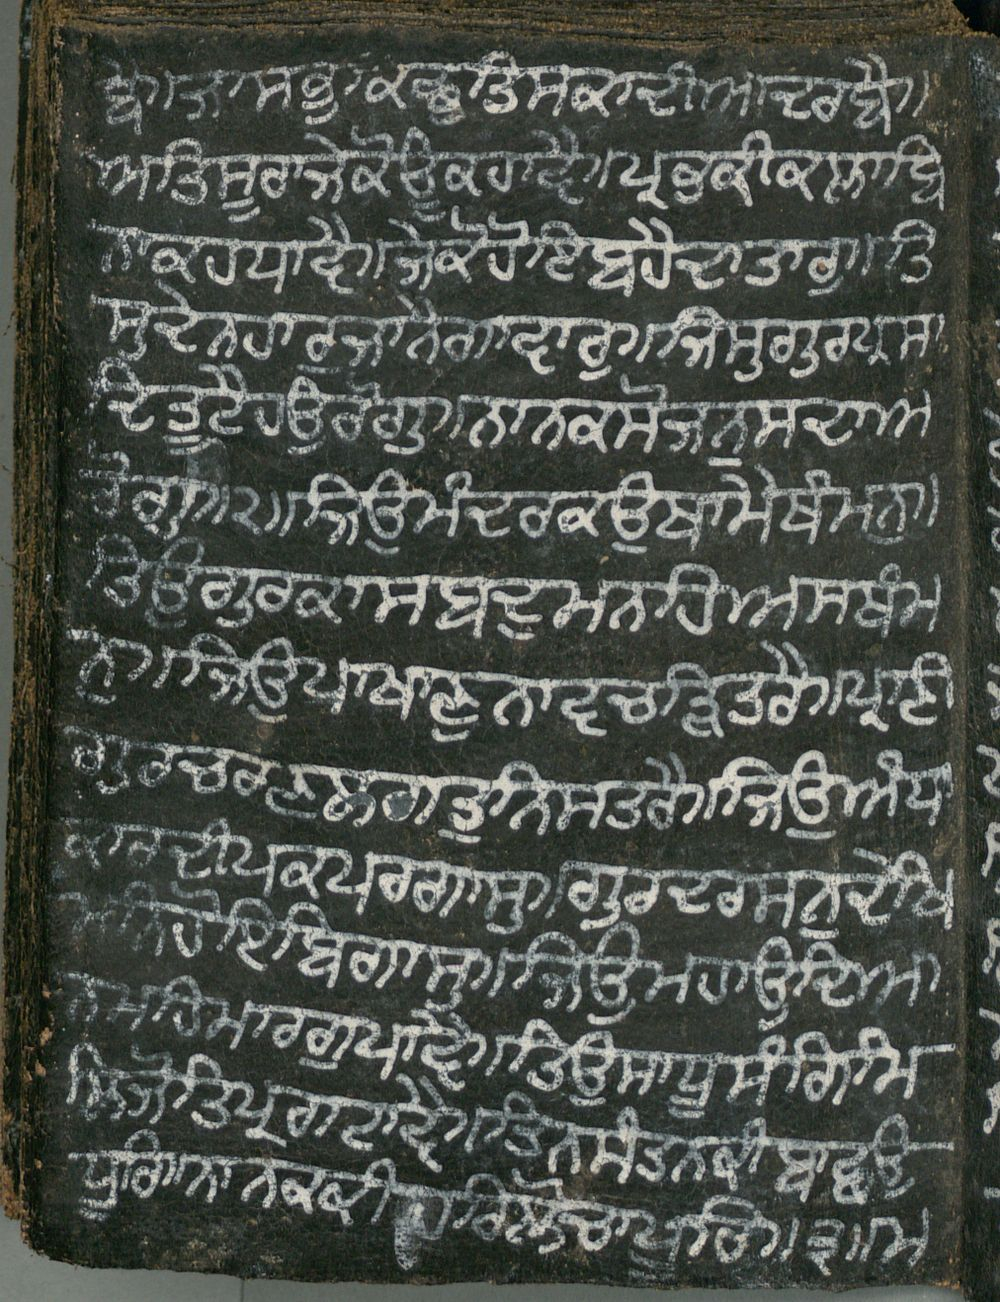 ਬੈ॥ਜਾਸਭੁਕਛੁਤਿਸਕਾਦੀਆਦਰਬੈ॥
ਅਤਿਸੂਰਾਜੇਕੋਊਕਹਾਵੈ॥ਪ੍ਰਭਕੀਕਲਾਬਿ
ਨਾਕਹਧਾਵੈ॥ਜੇਕੋਹੋਇਬਹੈਦਾਤਾਰੁ॥ਤਿ
ਸੁਦੇਨਹਾਰੁਜਾਨੈਗਾਵਾਰੁ॥ਜਿਸੁਗੁਰਪ੍ਰਸਾ
ਦਿਤੂਟੈਹਉਰੋਗੁ॥ਨਾਨਕਸੋਜਨੁਸਦਾਅ
ਰੋਗੁ॥੨॥ਜਿਉਮੰਦਰਕਉਥਾਮੈਥੰਮਨੁ॥
ਤਿਉਗੁਰਕਾਸਬਦੁਮਨਾਹਿਅਸਥੰਮ
ਨੁ॥ਜਿਉਪਾਖਾਣੁਨਾਵਚੜਿਤਰੈ॥ਪ੍ਰਾਣੀ
ਗੁਰਚਰਣਲਗਤੁਨਿਸਤਰੈ॥ਜਿਉਅੰਧ
ਕਾਰਦੀਪਕਪਰਗਾਸੁ॥ਗੁਰਦਰਸਨੁਦੇਖਿ
ਮਨਿਹੋਇਬਿਗਾਸੁ॥ਜਿਉਮਹਾਉਦਿਆ
ਨਮਹਿਮਾਰਗੁਪਾਵੈ॥ਤਿਉਸਾਧੂਸੰਗਿਮਿ
ਲਿਜੋਤਿਪ੍ਰਗਟਾਵੈ॥ਤਿਨਸੰਤਨਕੀਬਾਛਉ
ਧੂਰਿ॥ਨਾਨਕਕੀਹਰਿਲੋਚਾਪੂਰਿ॥੩॥ਮ